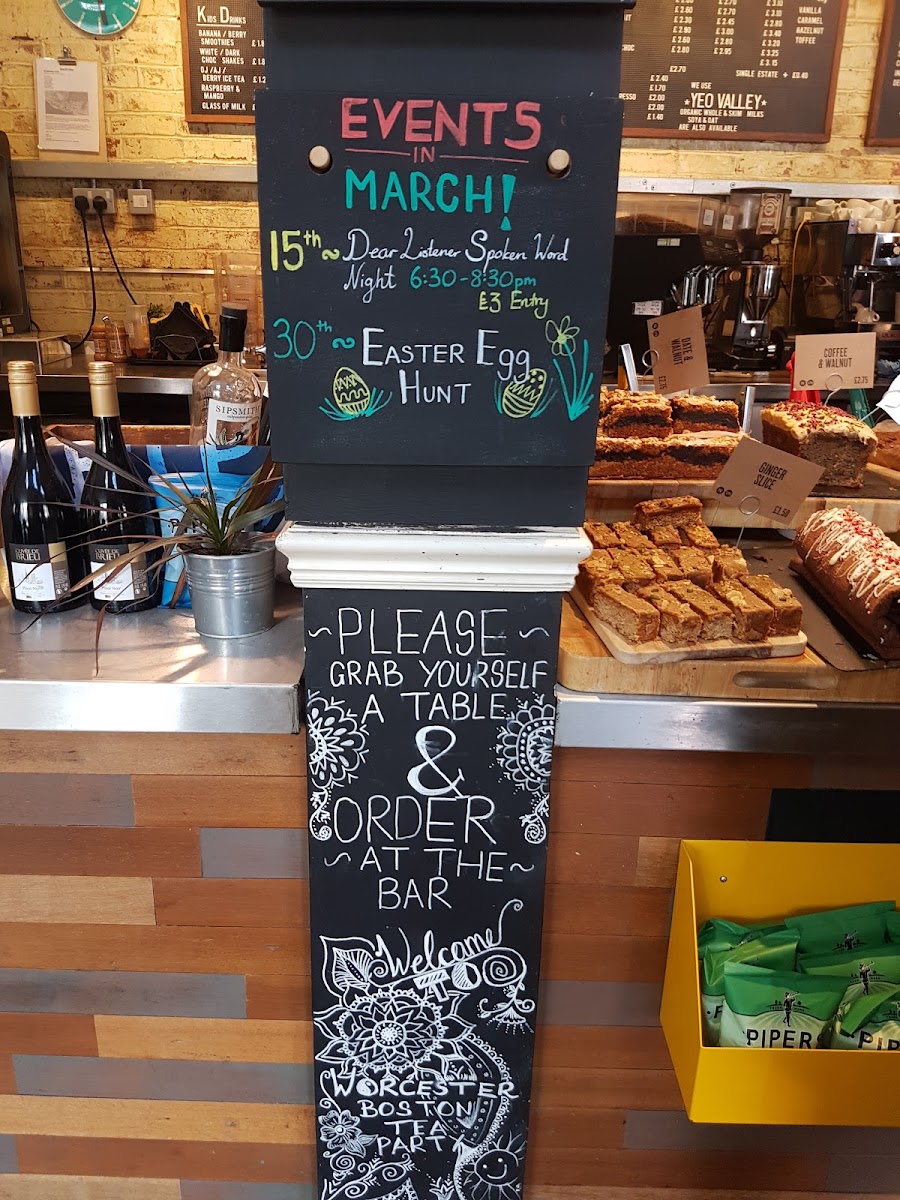 KIDS DRINKS
BANANA / BERRY
SMOOTHIES
WHITE / DARK
CHOC SHAKES
OJ / AJ /
BERRY ICE TEA
RASPBERRY &
MANGO
GLASS OF MILK
£2.60
£2.30
£2.80
£2.60
£2.80
£2.70
£2.45
£2.90
£2.80
£2.95
£3.10
£2.80
£3.40
£3.20
£3.25
£3.15
VANILLA
CARAMEL
HAZELNUT
TOFFEE
£2.70
SINGLE ESTATE + £0.40
£2.40
£1.70
£2.00
£2.00
£1.40
WE USE
*YEO VALLEY*
ORGANIC WHOLE & SKIM MILKS
SOYA & OAT
ARE ALSO AVAILABLE
EVENTS
IN
MARCH!
15th ~ Dear Listener Spoken Word
Night 6:30-8:30pm
£3 Entry
30th ~ EASTER EGG
HUNT
SIPSMITH
DATE &
WALNUT
£2.75
COFFEE
& WALNUT
£2.75
GINGER
SLICE
£2.50
CUVÉE DE
~ PLEASE ~
GRAB YOURSELF
A TABLE
&
ORDER
~ AT THE ~
BAR
Welcome
TOO
WORCESTER
BOSTON
TEA
PARTY
PIPERS
PIP